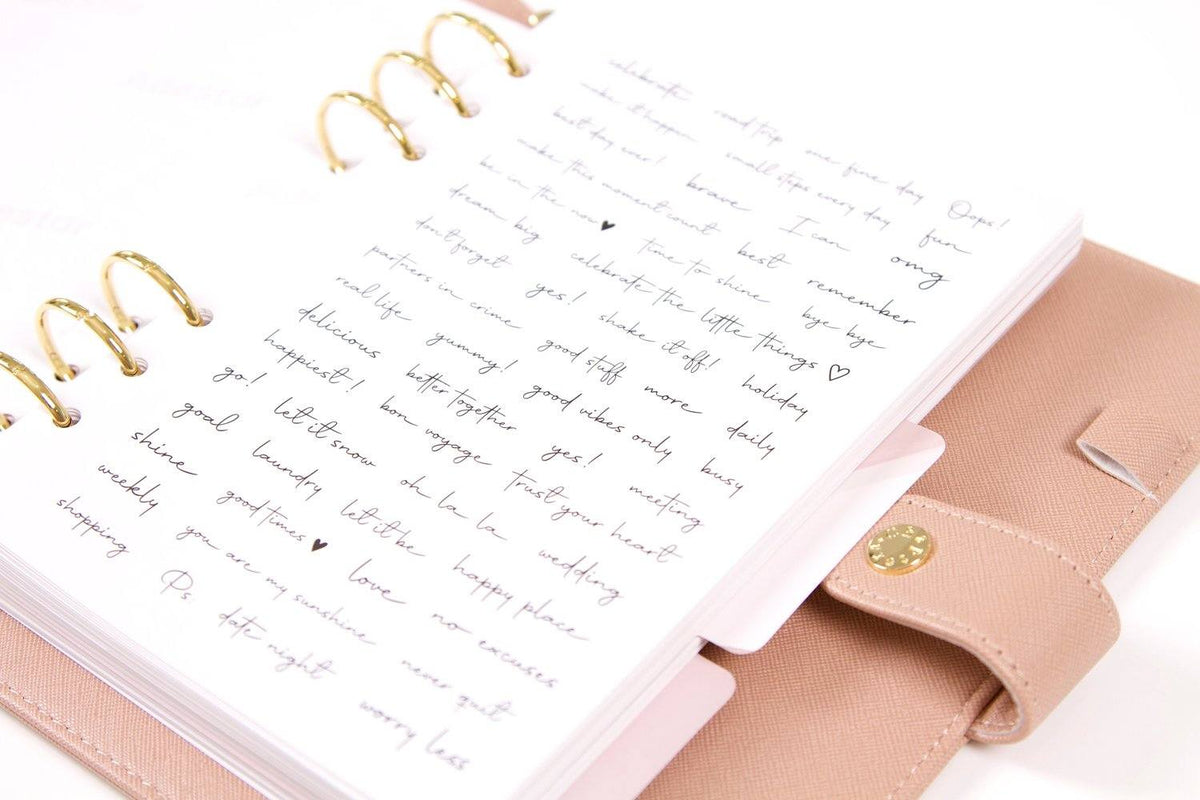 celebrate road trip one fine day Oops!
make it happen small steps every day fun
best day ever! brave I can omg
make this moment count best remember
be in the now ♥ time to shine bye bye
dream big celebrate the little things ♡
don't forget yes! shake it off! holiday
partners in crime good stuff more daily
real life yummy! good vibes only busy
delicious better together yes! meeting
happiest! bon voyage trust your heart
go! let it snow oh la la wedding
goal laundry let it be happy place
shine good times ♥ love no excuses
weekly you are my sunshine never quit
shopping Ps: date night worry less